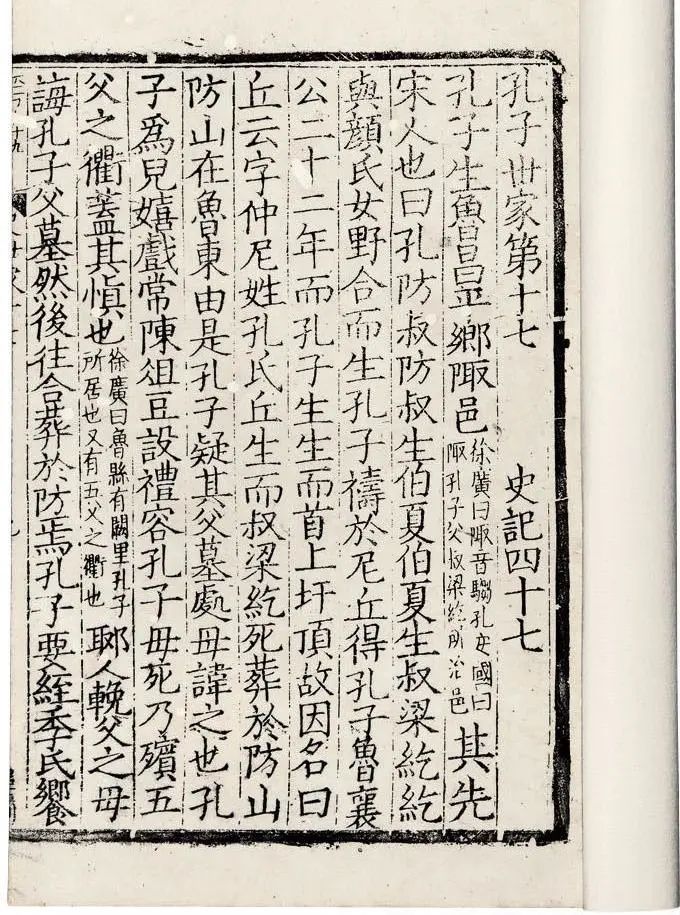 孔子世家第十七 史記四十七
孔子生魯昌平鄉陬邑徐廣曰陬音騶孔安國曰陬孔子父叔梁紇所治邑其先
宋人也曰孔防叔防叔生伯夏伯夏生叔梁紇紇
與顏氏女野合而生孔子禱於尼丘得孔子魯襄
公二十二年而孔子生生而首上圩頂故因名曰
丘云字仲尼姓孔氏丘生而叔梁紇死葬於防山
防山在魯東由是孔子疑其父墓處母諱之也孔
子爲兒嬉戲常陳俎豆設禮容孔子母死乃殯五
父之衢蓋其慎也徐廣曰魯縣有闕里孔子所居也又有五父之衢也郰人輓父之母
誨孔子父墓然後往合葬於防焉孔子要絰季氏饗